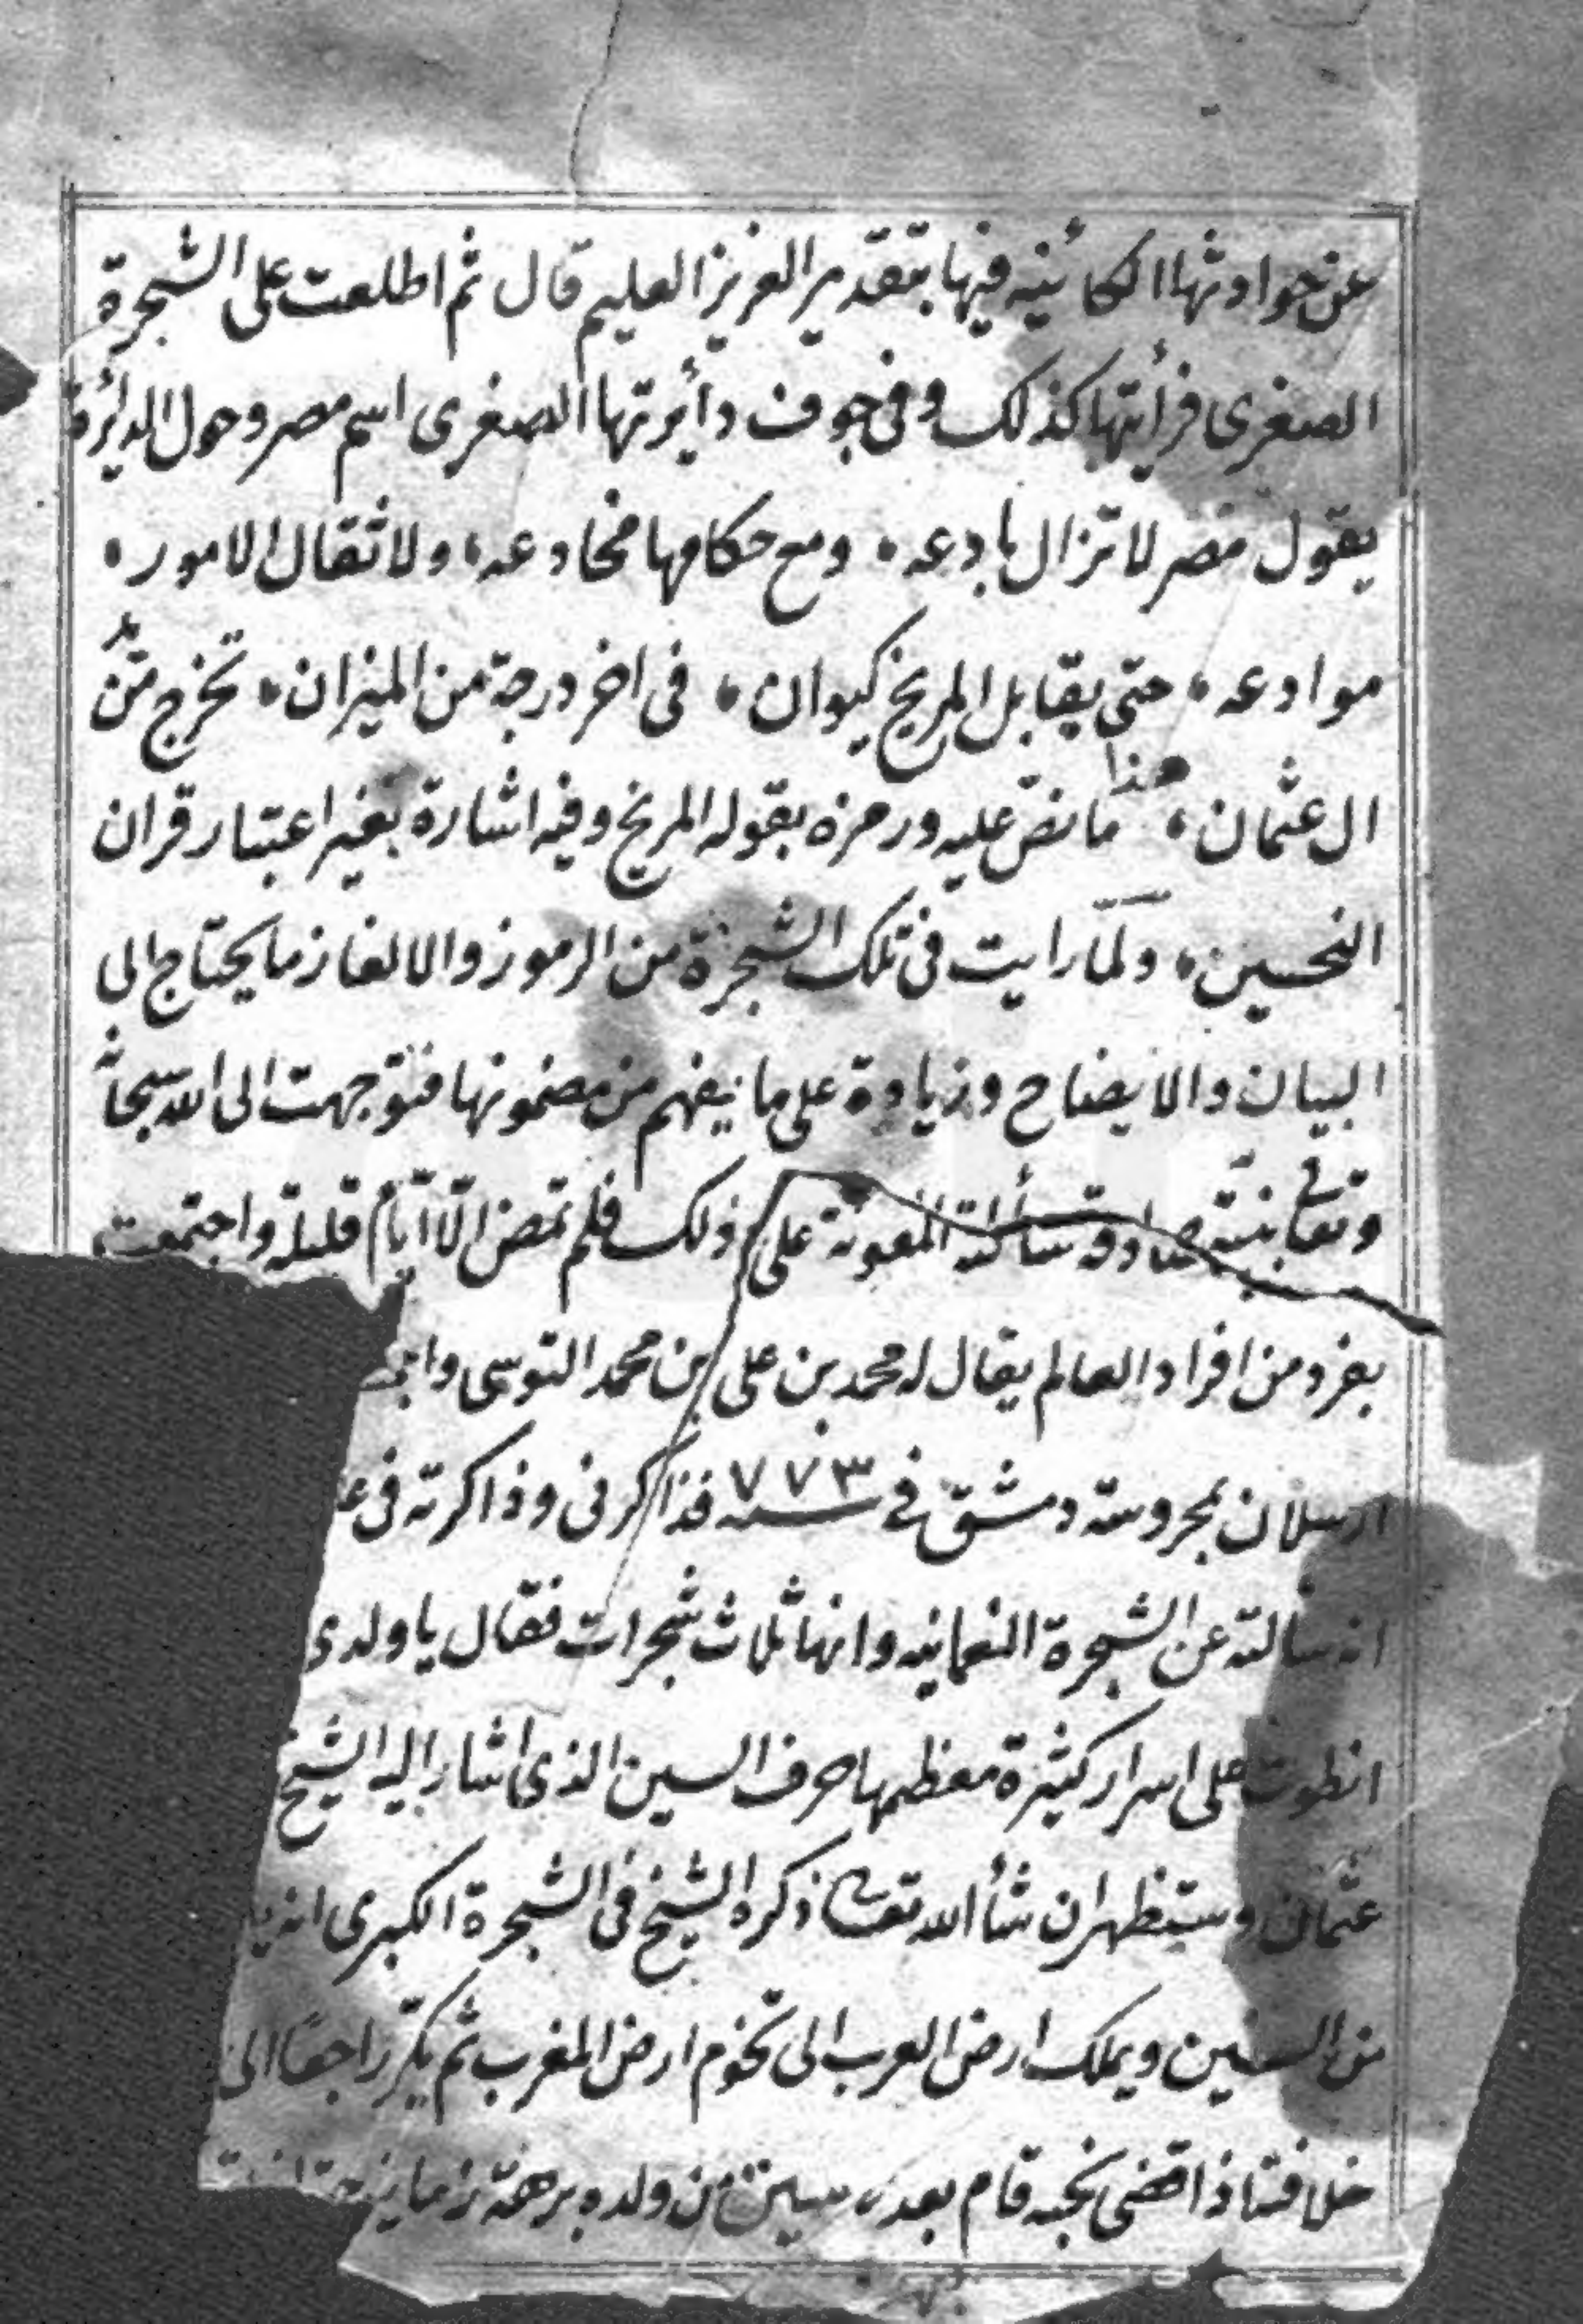 عن حوادثها الكائنيه فيها بتقدير العزيز العليم قال ثم اطلعت على الشجرة
الصغرى فرأيتها كذلك وفى جوف دأيرتها الصغرى اسم مصر وحول الدايرة
يقول مصر لا تزال بادعه، ومع حكامها مخادعه، ولا ثقال الامور،
موادعه، حتى يقابل المريخ كيوان، فى اخر درجة من الميزان، تخرج من
ال عثمان، هذا ما نصّ عليه ورمزه بقوله المريخ وفيه اشارة بغير اعتبار قران
النحسين، ولمّا رايت فى تلك الشجرة من الرموز والالغاز ما يحتاج الى
البيان والايضاح وزيادة على ما يفهم من مضمونها فتوجهت الى الله سبحانه
وتعالى بنيّة صادقة سألته المعونة على ذلك فلم تمض الّا ايّام قليلة واجتمعت
بفرد من افراد العالم يقال له محمد بن على بن محمد التوسى
ارسلان بمحروسة دمشق في سنه ٧٧٣ فذاكرنى وذاكرته فى
انه سالته عن الشجرة النعمانيه وانها ثلاث شجرات فقال يا ولدى
انطوت على اسرار كثيرة معظمها حرف السين الذى اشار اليه الشيخ
عثمان وستظهر ان شأ الله تعا ذكره الشيخ فى الشجرة الكبرى
من السنين ويملك ارض العرب الى تخوم ارض المغرب ثم يكرّ راجعًا الى
خلافته اذا قضى نحبه قام بعده سين من ولده برهة زمانيه